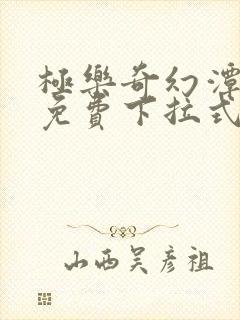 極樂奇幻潭
免費下拉式
山西吴彦祖